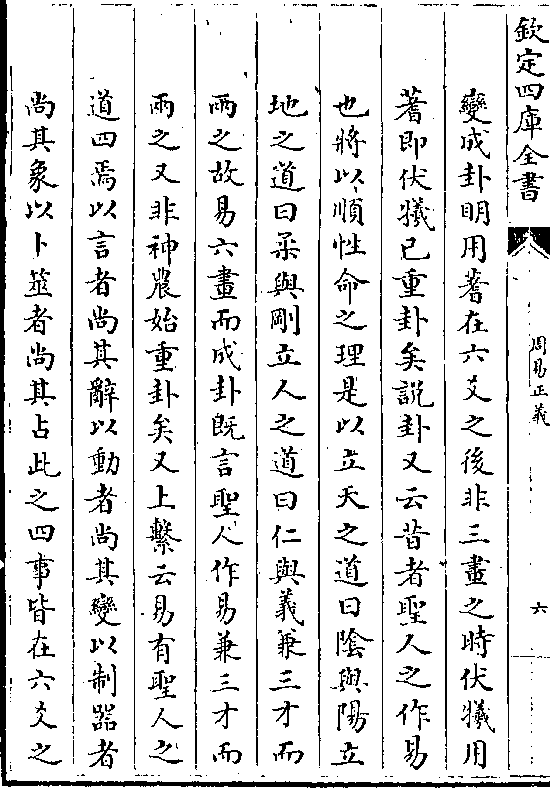 欽定四庫全書
周易正義
六
變成卦明用蓍在六爻之後非三畫之時伏犧用
蓍即伏犧已重卦矣說卦又云昔者聖人之作易
也將以順性命之理是以立天之道曰陰與陽立
地之道曰柔與剛立人之道曰仁與義兼三才而
兩之故易六畫而成卦既言聖人作易兼三才而
兩之又非神農始重卦矣又上繫云易有聖人之
道四焉以言者尚其辭以動者尚其變以制器者
尚其象以卜筮者尚其占此之四事皆在六爻之